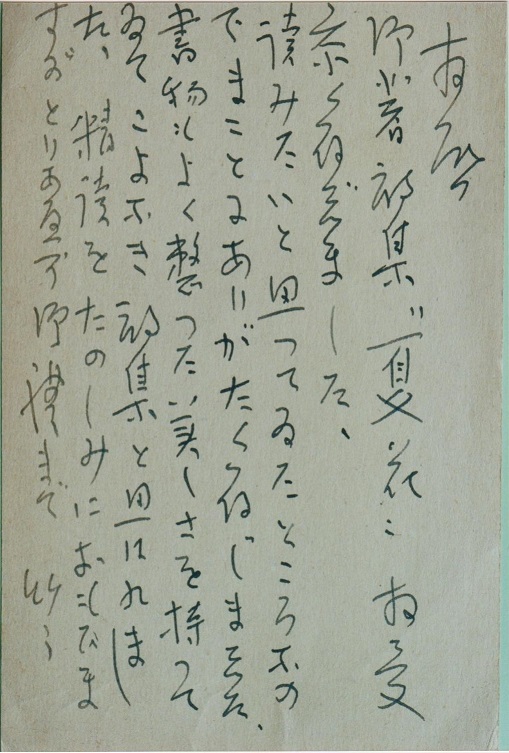 拝啓
御著詩集〝夏花〟拝受
忝く存じました、
讀みたいと思つてゐたところなの
でまことにありがたく存じました、
書物もよく整つた美しさを持つて
ゐてこよなき詩集と思はれまし
た、精讀をたのしみにおもひま
すがとりあへず御禮まで